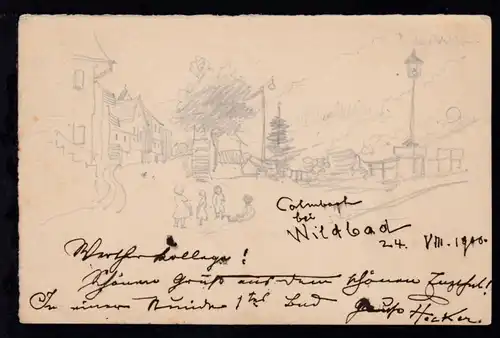 Calmbach
bei
Wildbad
24. VIII. 1910.
Werther Kollege!
Schönen Gruß aus dem schönen Enzthal!
In einer Stunde 1tes Bad
Hecker.